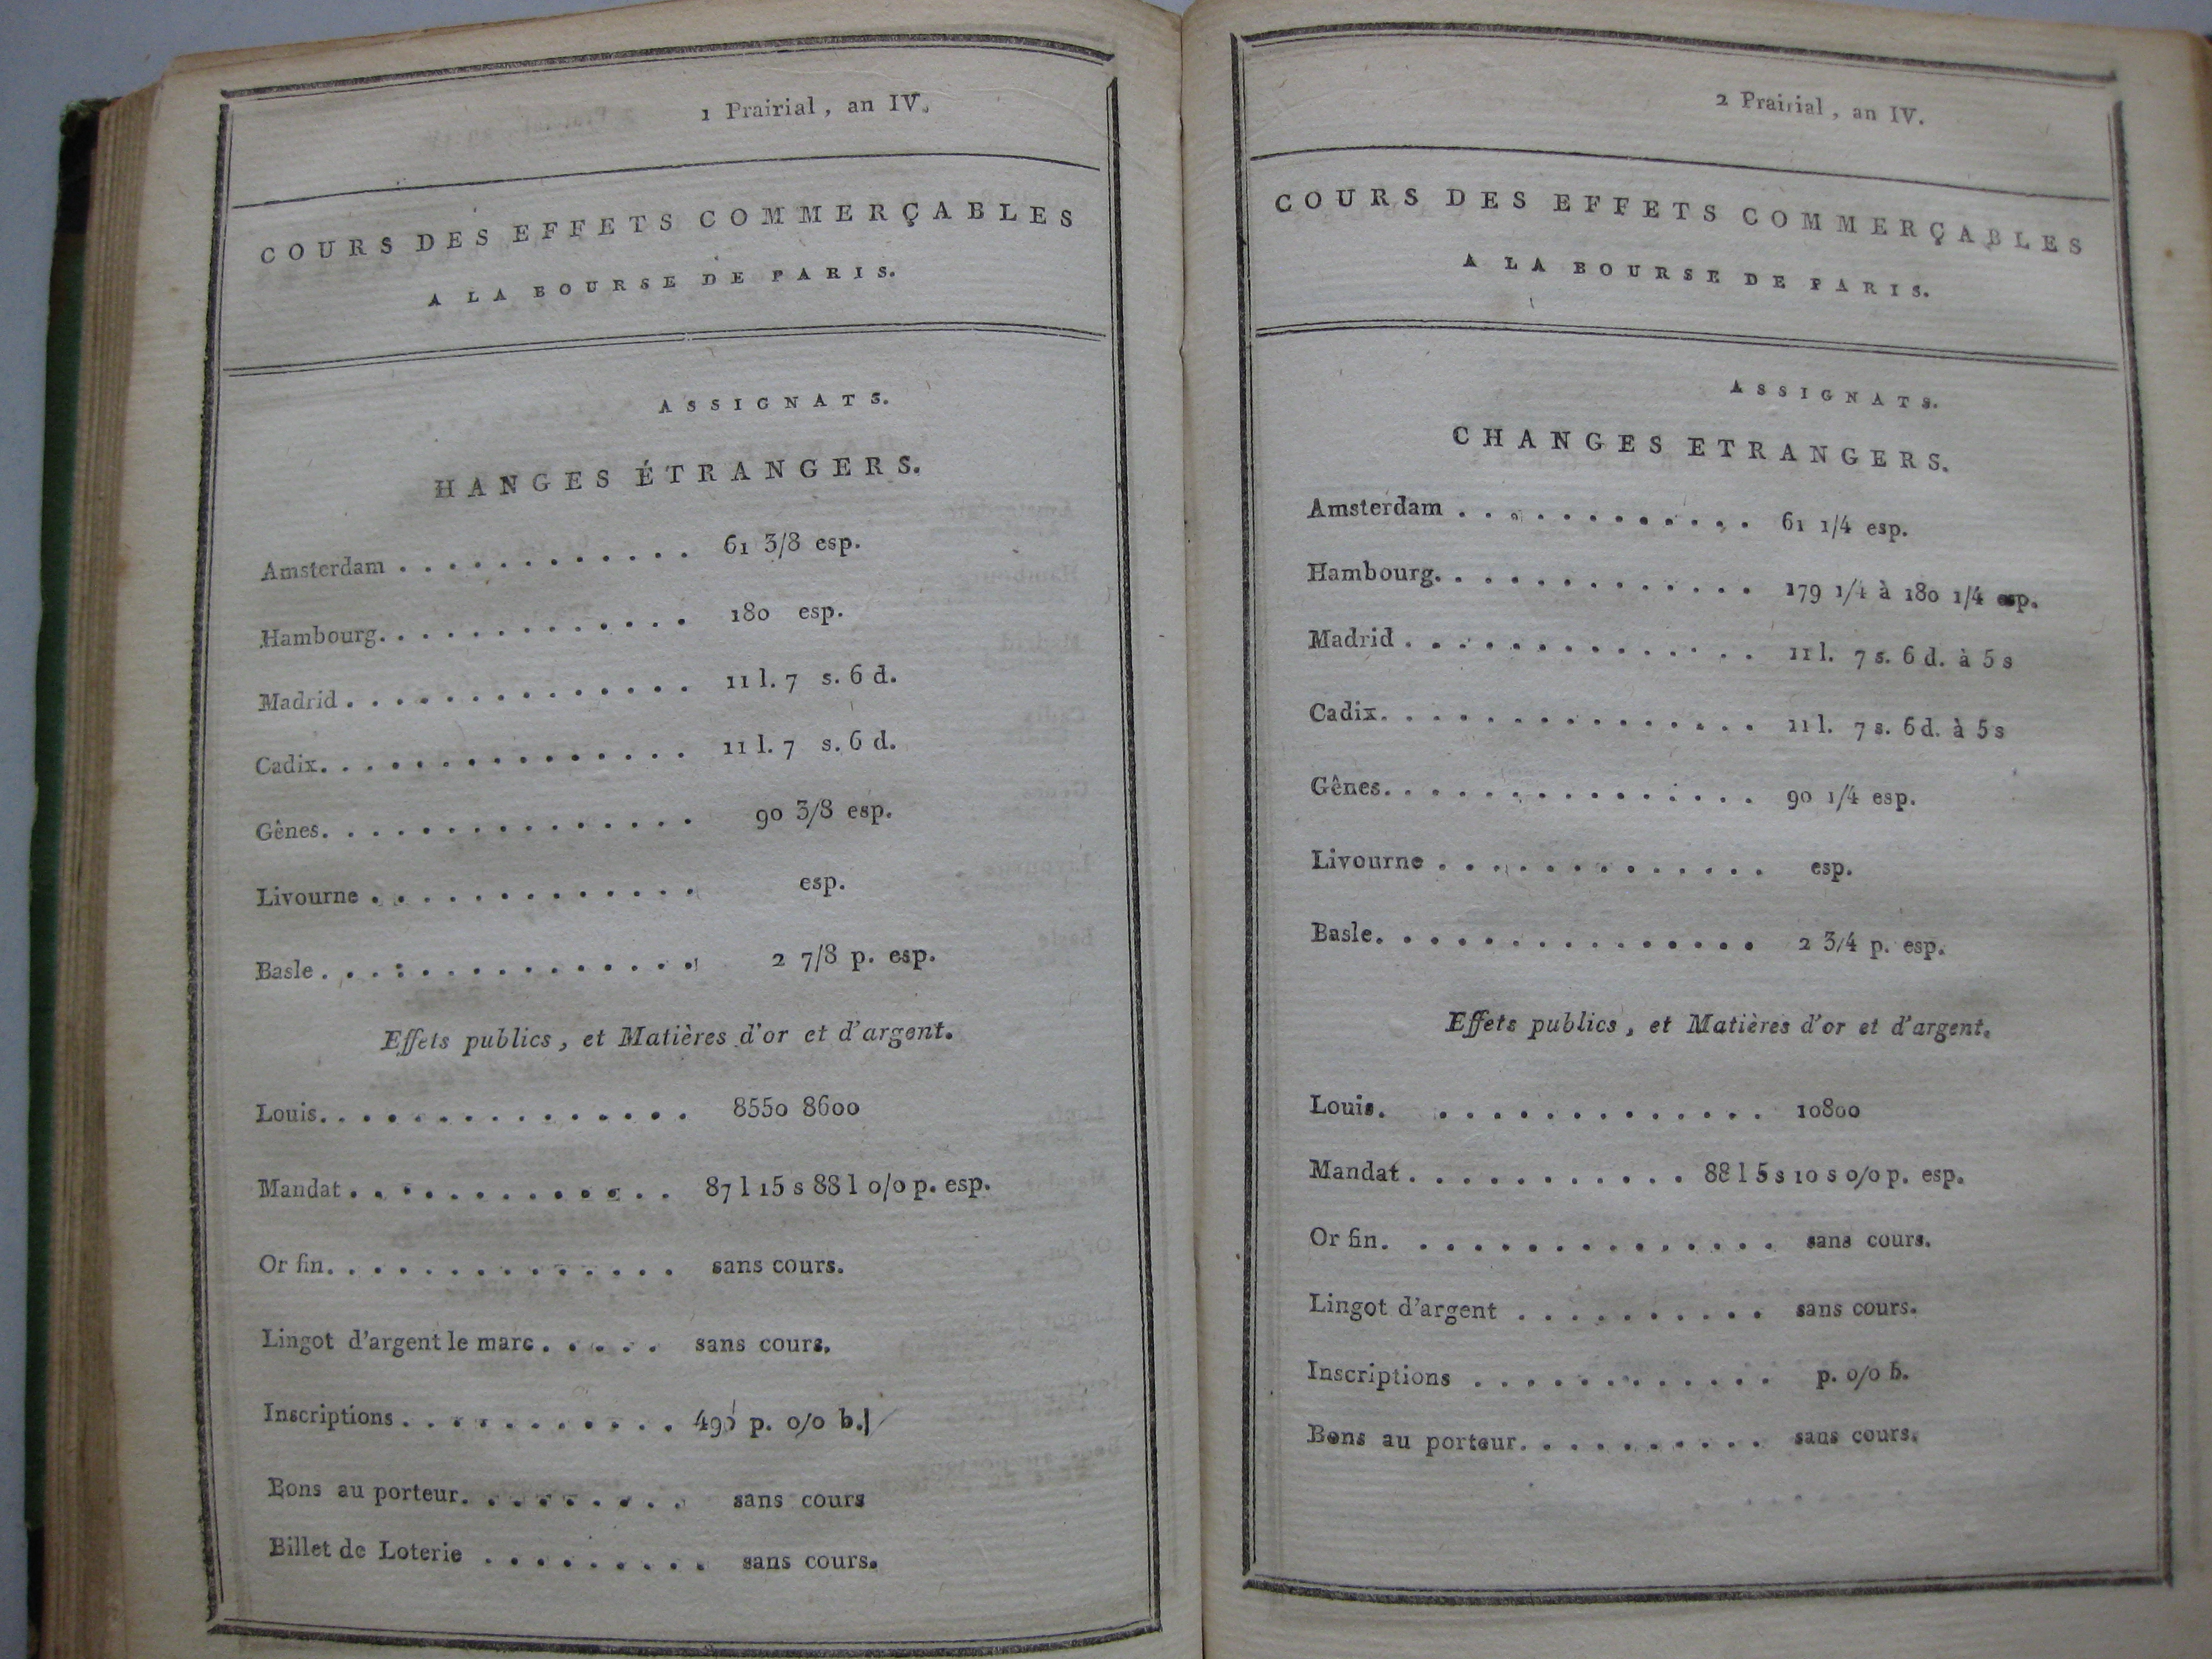 1 Prairial, an IV.
COURS DES EFFETS COMMERÇABLES
A LA BOURSE DE PARIS.
ASSIGNATS.
HANGES ÉTRANGERS.
Amsterdam . . . . . . . . . . . . 61 3/8 esp.
Hambourg. . . . . . . . . . . . . 180 esp.
Madrid . . . . . . . . . . . . . . 11 l. 7 s. 6 d.
Cadix. . . . . . . . . . . . . . . 11 l. 7 s. 6 d.
Gênes. . . . . . . . . . . . . . . 90 3/8 esp.
Livourne . . . . . . . . . . . . . esp.
Basle . . . . . . . . . . . . . . . 2 7/8 p. esp.
Effets publics, et Matières d'or et d'argent.
Louis. . . . . . . . . . . . . . . 8550 8600
Mandat . . . . . . . . . . . . . 87 l 15 s 88 l o/o p. esp.
Or fin. . . . . . . . . . . . . . . sans cours.
Lingot d'argent le marc . . . . . sans cours.
Inscriptions . . . . . . . . . . . p. o/o b.
Bons au porteur. . . . . . . . . sans cours
Billet de Loterie . . . . . . . . . sans cours.
2 Prairial, an IV.
COURS DES EFFETS COMMERÇABLES
A LA BOURSE DE PARIS.
ASSIGNATS.
CHANGES ETRANGERS.
Amsterdam . . . . . . . . . . . . 61 1/4 esp.
Hambourg. . . . . . . . . . . . . 179 1/4 à 180 1/4 esp.
Madrid . . . . . . . . . . . . . . 11 l. 7 s. 6 d. à 5 s
Cadix. . . . . . . . . . . . . . . 11 l. 7 s. 6 d. à 5 s
Gênes. . . . . . . . . . . . . . . 90 1/4 esp.
Livourne . . . . . . . . . . . . . esp.
Basle. . . . . . . . . . . . . . . 2 3/4 p. esp.
Effets publics, et Matières d'or et d'argent.
Louis. . . . . . . . . . . . . . 10800
Mandat . . . . . . . . . . . 88 l 5 s 10 s o/o p. esp.
Or fin. . . . . . . . . . . . . . . sans cours.
Lingot d'argent . . . . . . . . . . sans cours.
Inscriptions . . . . . . . . . . . . p. o/o b.
Bons au porteur. . . . . . . . . . sans cours.